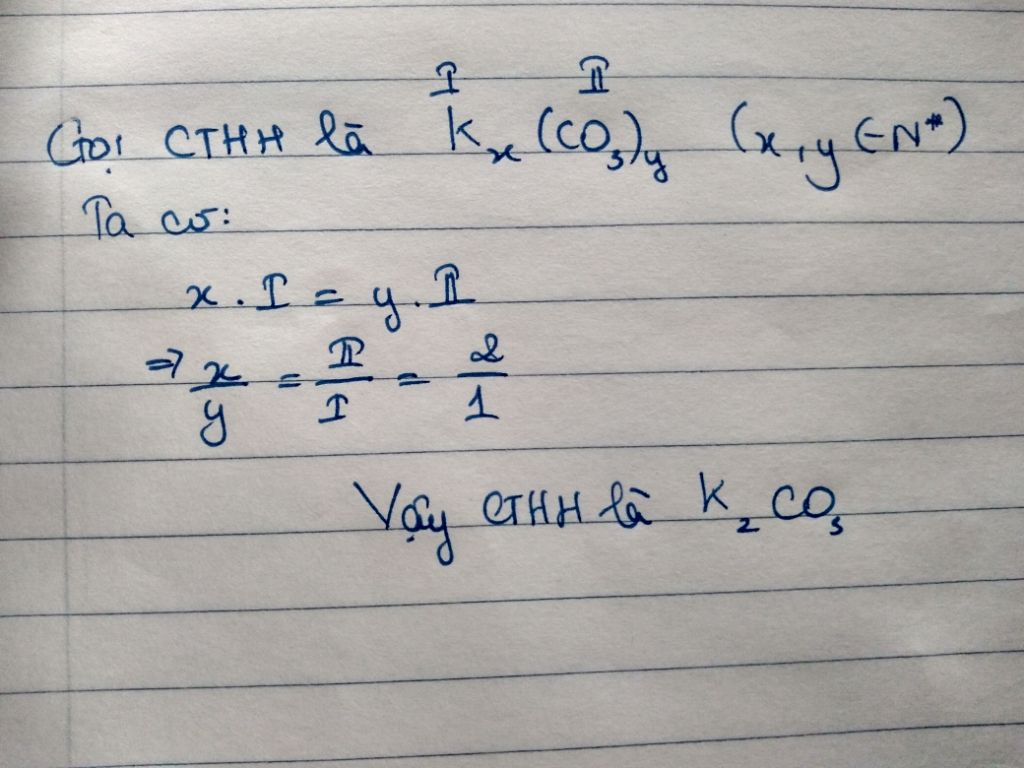 I II
Gọi CTHH là Kₓ(CO₃)y (x, y ∈ N*)
Ta có:
x . I = y . II
=> x/y = II/I = 2/1
Vậy CTHH là K₂CO₃